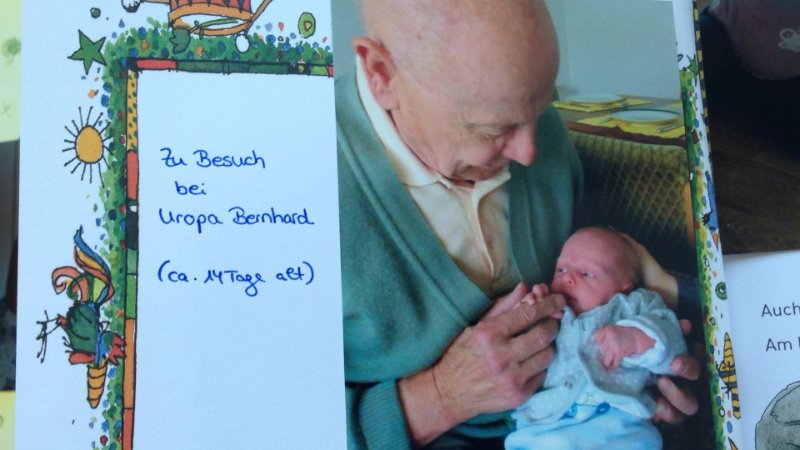 Zu Besuch
bei
Uropa Bernhard
(ca. 14 Tage alt)
Auch
Am